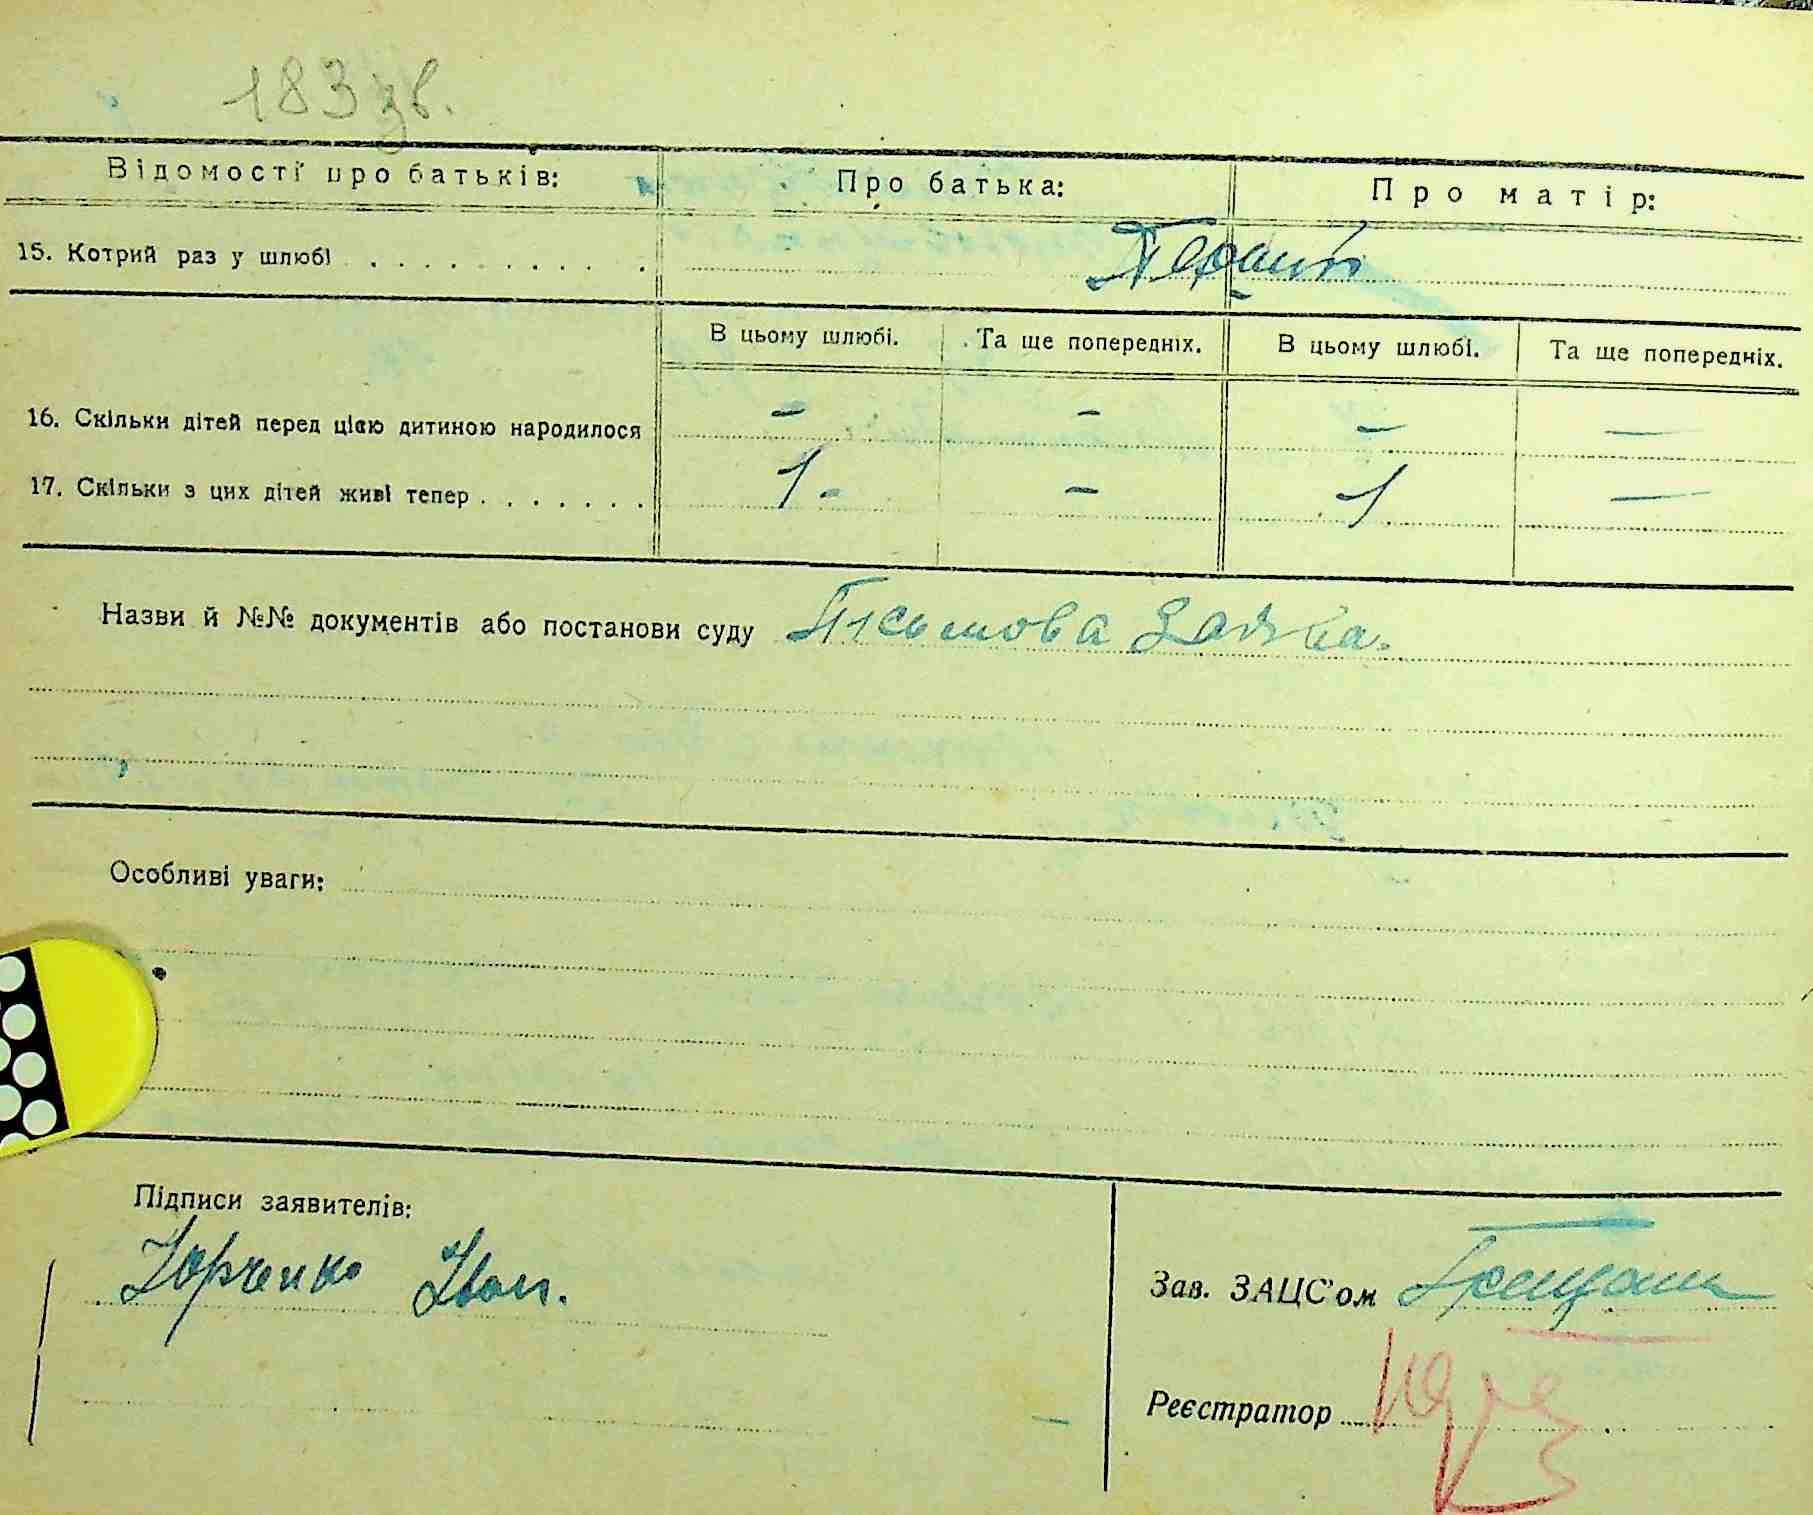 183 зв.
Відомості про батьків: Про батька: Про матір:
15. Котрий раз у шлюбі . . . . . . . . . . Перший
В цьому шлюбі. Та ще попередніх. В цьому шлюбі. Та ще попередніх.
16. Скільки дітей перед цією дитиною народилося - - - —
17. Скільки з цих дітей живі тепер . . . . . . . 1 - - 1 —
Назви й №№ документів або постанови суду Письмова заявка.
Особливі уваги:
Підписи заявителів:
Юрченко Іван.
Зав. ЗАЦС'ом
Реєстратор